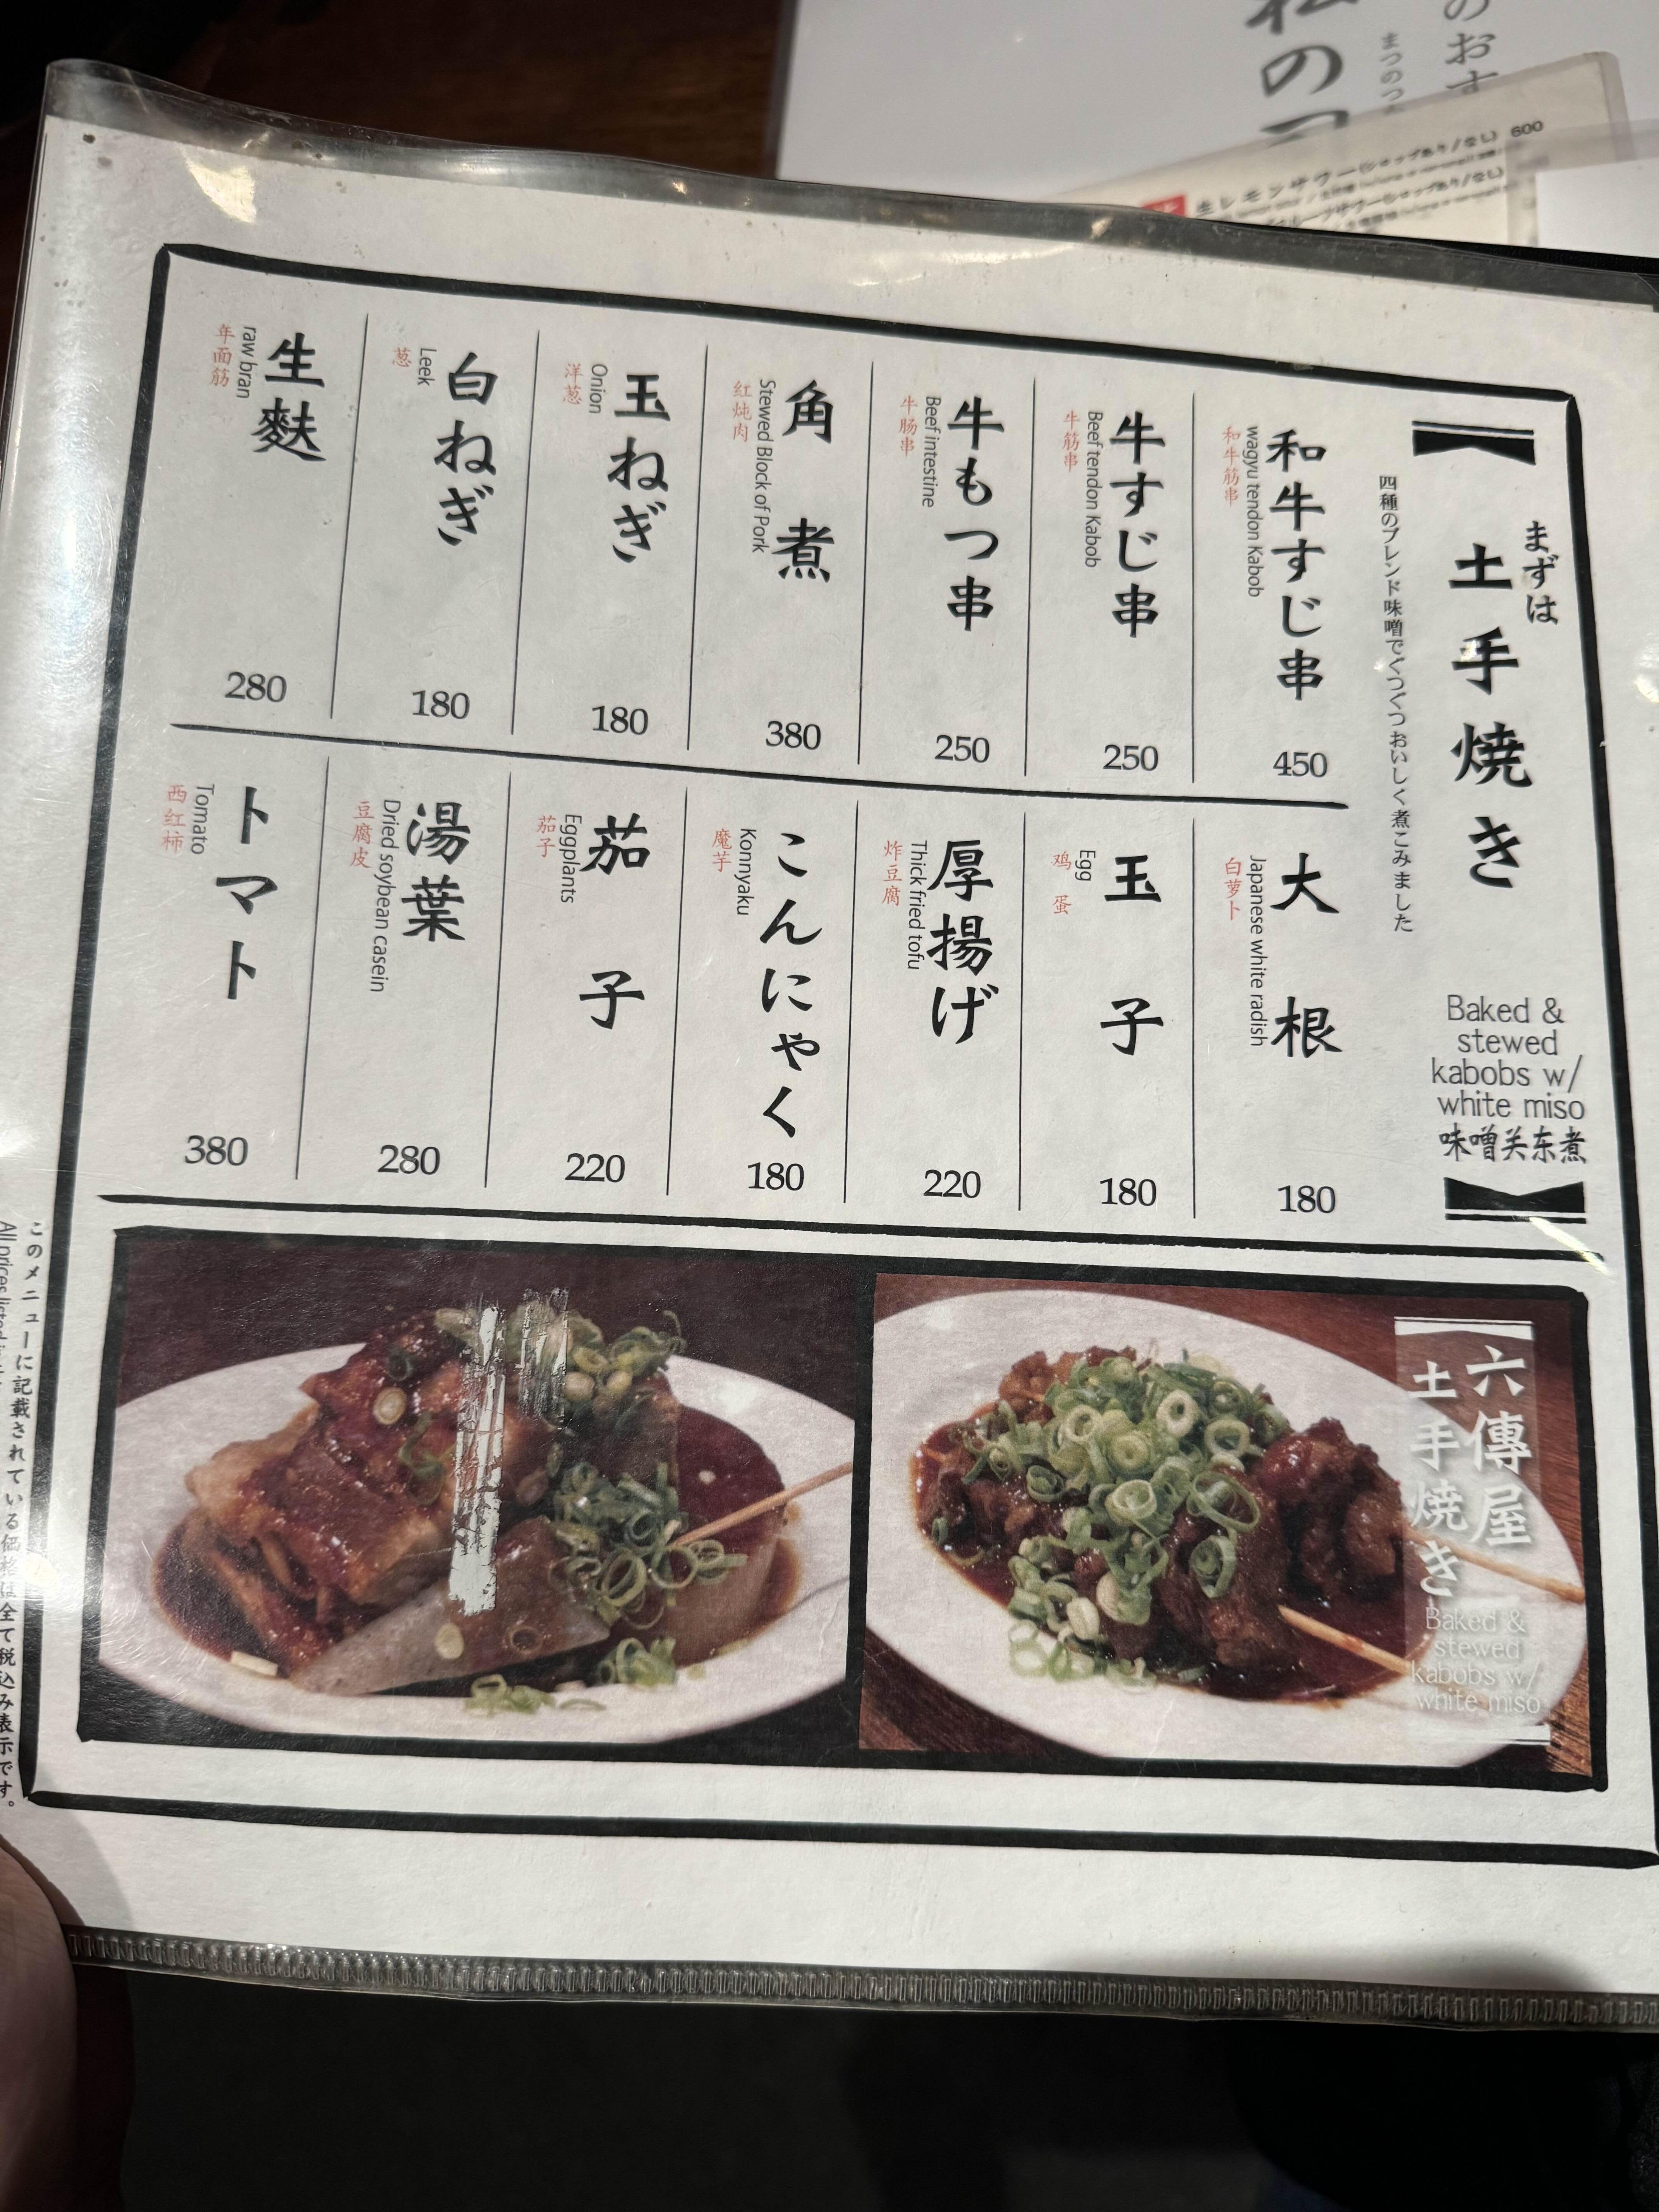 まずは
土手焼き
Baked &
stewed
kabobs w/
white miso
味噌关东煮
四種のブレンド味噌でぐつぐつおいしく煮こみました
和牛すじ串
wagyu tendon Kabob
和牛筋串
450
牛すじ串
Beef tendon Kabob
牛筋串
250
牛もつ串
Beef intestine
牛肠串
250
角煮
Stewed Block of Pork
红炖肉
380
玉ねぎ
Onion
洋葱
180
白ねぎ
Leek
葱
180
生麩
raw bran
年面筋
280
大根
Japanese white radish
白萝卜
180
玉子
Egg
鸡蛋
180
厚揚げ
Thick fried tofu
炸豆腐
220
こんにゃく
Konnyaku
魔芋
180
茄子
Eggplants
茄子
220
湯葉
Dried soybean casein
豆腐皮
280
トマト
Tomato
西红柿
380
六傳屋
土手焼き
Baked &
stewed
kabobs w/
white miso
このメニューに記載されている価格は全て税込み表示です。
All prices listed
のおす
まつのつ
私のつ
生レモンサワー(シロップあり/なし) 600